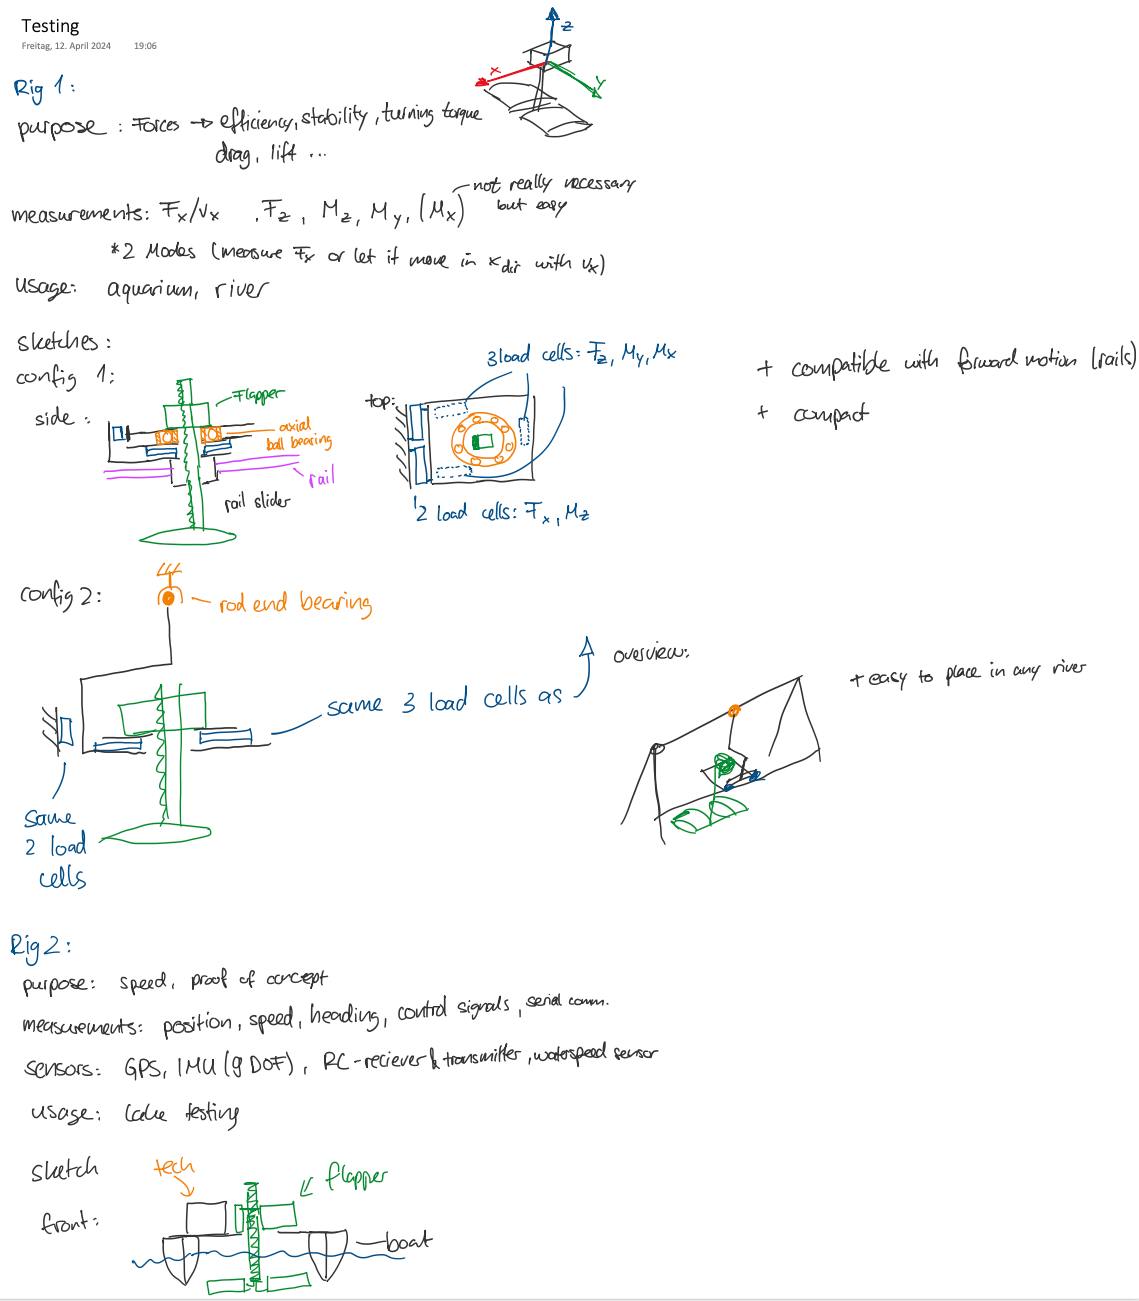 Testing
Freitag, 12. April 2024 19:06
z
x
y
Rig 1:
purpose: Forces → efficiency, stability, turning torque
drag, lift ...
measurements: Fx/vx , Fz, Mz, My, (Mx) not really necessary
but easy
*2 Modes (measure Fx or let it move in xdir with vx)
usage: aquarium, river
sketches:
config 1:
side:
Flapper
axial
ball bearing
rail
rail slider
top:
3 load cells: Fz, My, Mx
2 load cells: Fx, Mz
+ compatible with forward motion (rails)
+ compact
config 2:
rod end bearing
same 3 load cells as
same
2 load
cells
overview:
+ easy to place in any river
Rig 2:
purpose: speed, proof of concept
measurements: position, speed, heading, control signals, serial comm.
sensors: GPS, IMU (9 DOF), RC-reciever & transmitter, waterspeed sensor
usage: Lake testing
sketch
front:
tech
flapper
boat